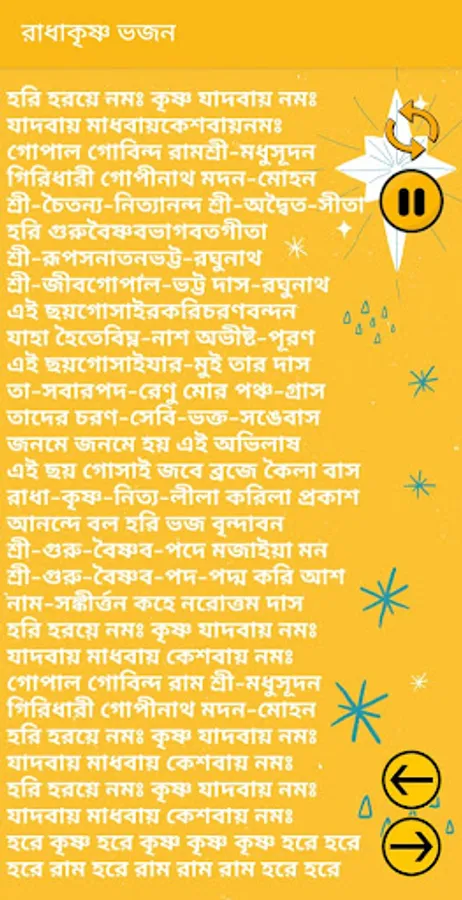 রাধাকৃষ্ণ ভজন
হরি হরয়ে নমঃ কৃষ্ণ যাদবায় নমঃ
যাদবায় মাধবায়কেশবায়নমঃ
গোপাল গোবিন্দ রামশ্রী-মধুসূদন
গিরিধারী গোপীনাথ মদন-মোহন
শ্রী-চৈতন্য-নিত্যানন্দ শ্রী-অদ্বৈত-সীতা
হরি গুরুবৈষ্ণবভাগবতগীতা
শ্রী-রূপসনাতনভট্ট-রঘুনাথ
শ্রী-জীবগোপাল-ভট্ট দাস-রঘুনাথ
এই ছয়গোসাইরকরিচরণবন্দন
যাহা হৈতেবিঘ্ন-নাশ অভীষ্ট-পূরণ
এই ছয়গোসাইযার-মুই তার দাস
তা-সবারপদ-রেণু মোর পঞ্চ-গ্রাস
তাদের চরণ-সেবি-ভক্ত-সঙেবাস
জনমে জনমে হয় এই অভিলাষ
এই ছয় গোসাই জবে ব্রজে কৈলা বাস
রাধা-কৃষ্ণ-নিত্য-লীলা করিলা প্রকাশ
আনন্দে বল হরি ভজ বৃন্দাবন
শ্রী-গুরু-বৈষ্ণব-পদে মজাইয়া মন
শ্রী-গুরু-বৈষ্ণব-পদ-পদ্ম করি আশ
নাম-সঙ্কীর্ত্তন কহে নরোত্তম দাস
হরি হরয়ে নমঃ কৃষ্ণ যাদবায় নমঃ
যাদবায় মাধবায় কেশবায় নমঃ
গোপাল গোবিন্দ রাম শ্রী-মধুসূদন
গিরিধারী গোপীনাথ মদন-মোহন
হরি হরয়ে নমঃ কৃষ্ণ যাদবায় নমঃ
যাদবায় মাধবায় কেশবায় নমঃ
হরি হরয়ে নমঃ কৃষ্ণ যাদবায় নমঃ
যাদবায় মাধবায় কেশবায় নমঃ
হরে কৃষ্ণ হরে কৃষ্ণ কৃষ্ণ কৃষ্ণ হরে হরে
হরে রাম হরে রাম রাম রাম হরে হরে